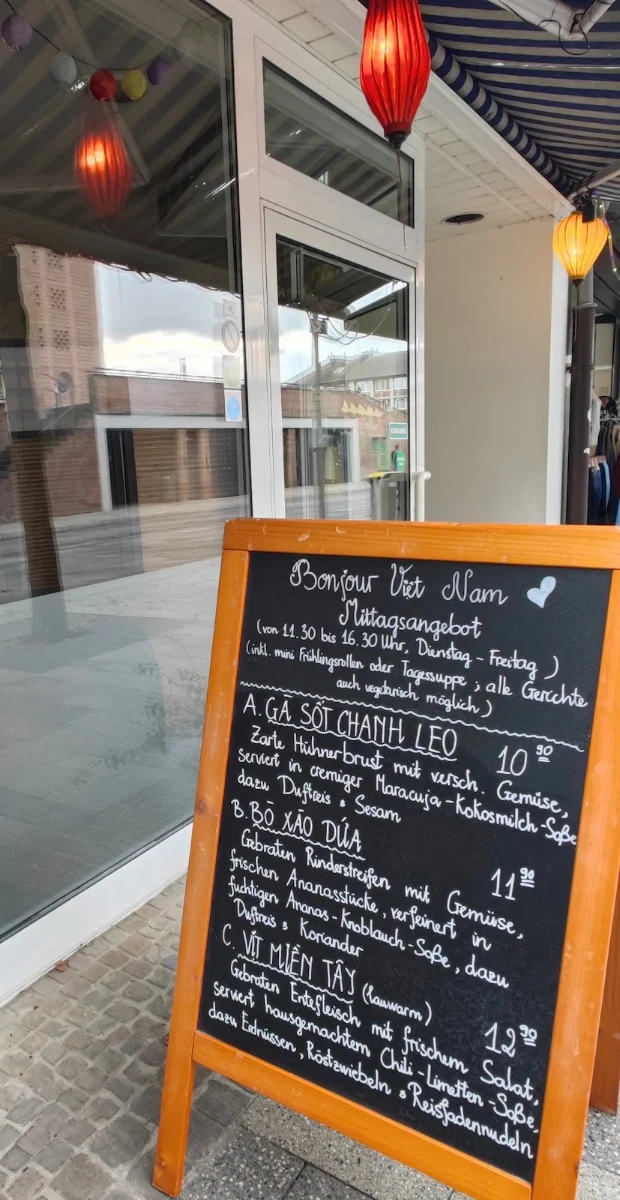 Bonjour Việt Nam
Mittagsangebot
(von 11.30 bis 16.30 Uhr, Dienstag - Freitag)
(inkl. mini Frühlingsrollen oder Tagessuppe; alle Gerichte
auch vegetarisch möglich)
A. GÀ SỐT CHANH LEO 10 90
Zarte Hühnerbrust mit versch. Gemüse,
serviert in cremiger Maracuja-Kokosmilch-Soße
dazu Duftreis & Sesam
B. BÒ XÀO DỨA 11 90
Gebraten Rinderstreifen mit Gemüse,
frischen Ananasstücke, verfeinert in
fuchtigen Ananas-Knoblauch-Soße, dazu
Duftreis & Koriander
C. VỊT MIỀN TÂY (lauwarm) 12 90
Gebraten Entefleisch mit frischem Salat,
serviert hausgemachtem Chili-Limetten-Soße,
dazu Ednüssen, Röstzwiebeln & Reisfadennudeln